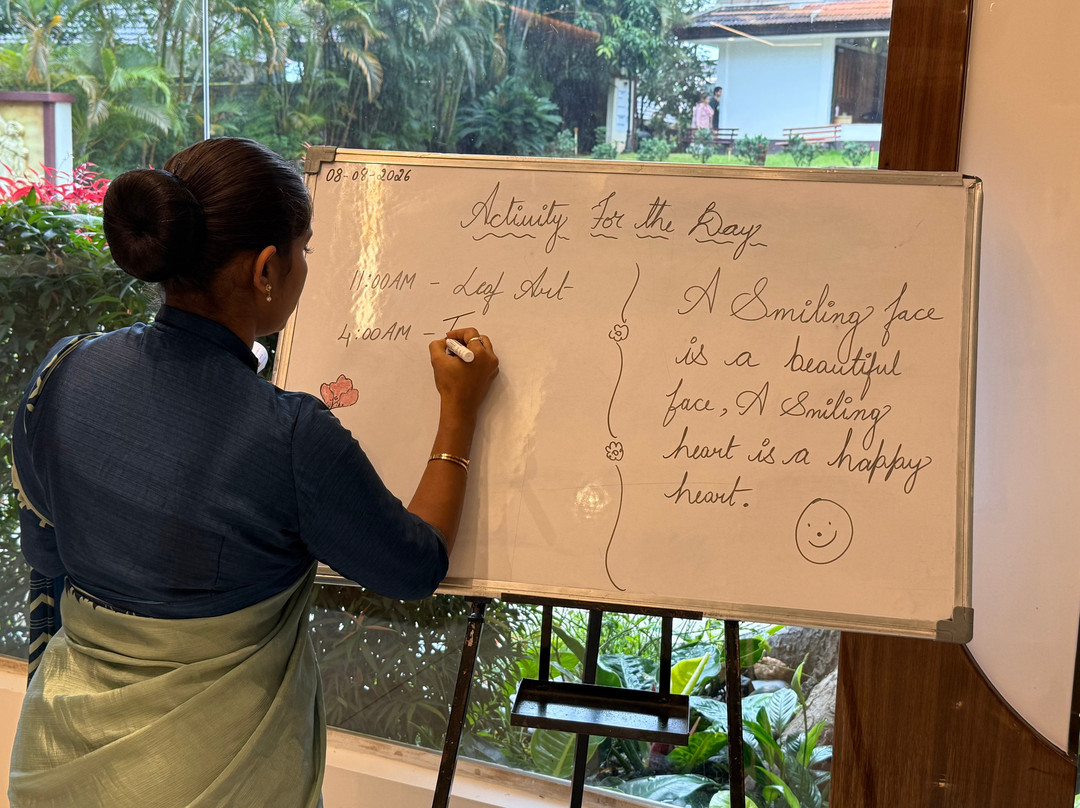 08-08-2026
Activity For the Day
11:00AM - Leaf Art
4:00AM - T
A Smiling face
is a beautiful
face, A Smiling
heart is a happy
heart.